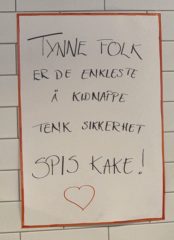 TYNNE FOLK
ER DE ENKLESTE
Å KIDNAPPE
TENK SIKKERHET
SPIS KAKE!